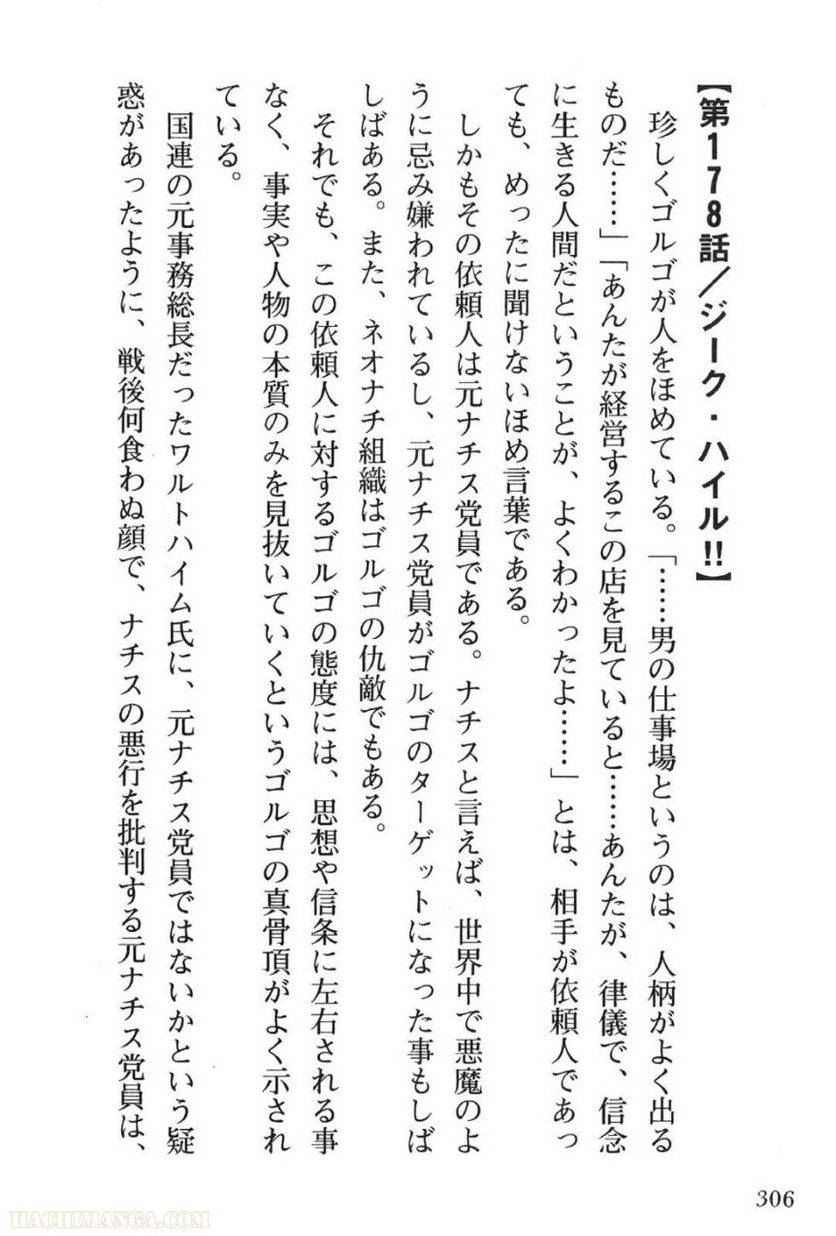 【第178話／ジーク・ハイル!!】
珍しくゴルゴが人をほめている。「……男の仕事場というのは、人柄がよく出る
ものだ……」「あんたが経営するこの店を見ていると……あんたが、律儀で、信念
に生きる人間だということが、よくわかったよ……」とは、相手が依頼人であっ
ても、めったに聞けないほめ言葉である。
しかもその依頼人は元ナチス党員である。ナチスと言えば、世界中で悪魔のよ
うに忌み嫌われているし、元ナチス党員がゴルゴのターゲットになった事もしば
しばある。また、ネオナチ組織はゴルゴの仇敵でもある。
それでも、この依頼人に対するゴルゴの態度には、思想や信条に左右される事
なく、事実や人物の本質のみを見抜いていくというゴルゴの真骨頂がよく示され
ている。
国連の元事務総長だったワルトハイム氏に、元ナチス党員ではないかという疑
惑があったように、戦後何食わぬ顔で、ナチスの悪行を批判する元ナチス党員は、
306
HACHIMANGA.COM